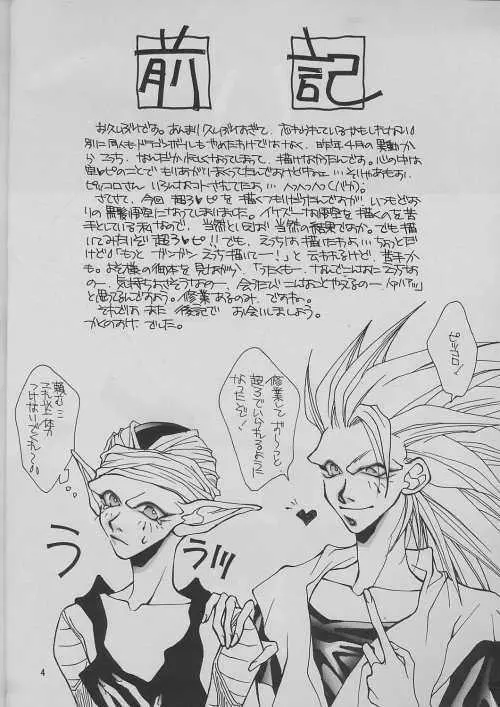 前記
お久しぶりです。あんまり久しぶりすぎて、忘れられているかもしれない。
別に同人もドラゴンボールもやめたわけではなく、昨年4月の異動か
ら こっち、なんだか忙しくなってしまって、描けなかったんです。心の中は
空♥ピのことでもりあがりまくってたんですけどねー… …それはおもに、
ピッコロさん いろんなコトされてたお… へへへへ(バか)。
さてさて、今回 超3♥ピ を描くつもりだったんですが、いつもどお
りの黒髪悟空になってしまいました。イケズーな悟空を描くのを苦
手としているわけなので、当然と言えば 当然の結果ですか。でも描
いてみたいぞ 超3♥ピ!! でも、えっちは描いたわよ…ちょっとだ
けど「もっと ガンガン えっち描いてー!」と云われるけど、苦手か
も。お客様の御本を見ながら、「うたくもー、なんでこんなにえっち
なのー、気持ちよさそうなのー、
と思ってるんですよう。修業あるのみ ですわね。
それでは また 後記で お会いしましょう。
かとのおけでした。
ピッコロ♡
修業して
ずーっと
超3でいられるように
なったぞ!
頼む…
それ以上
つけないでくれ〜
う
うハツ
4